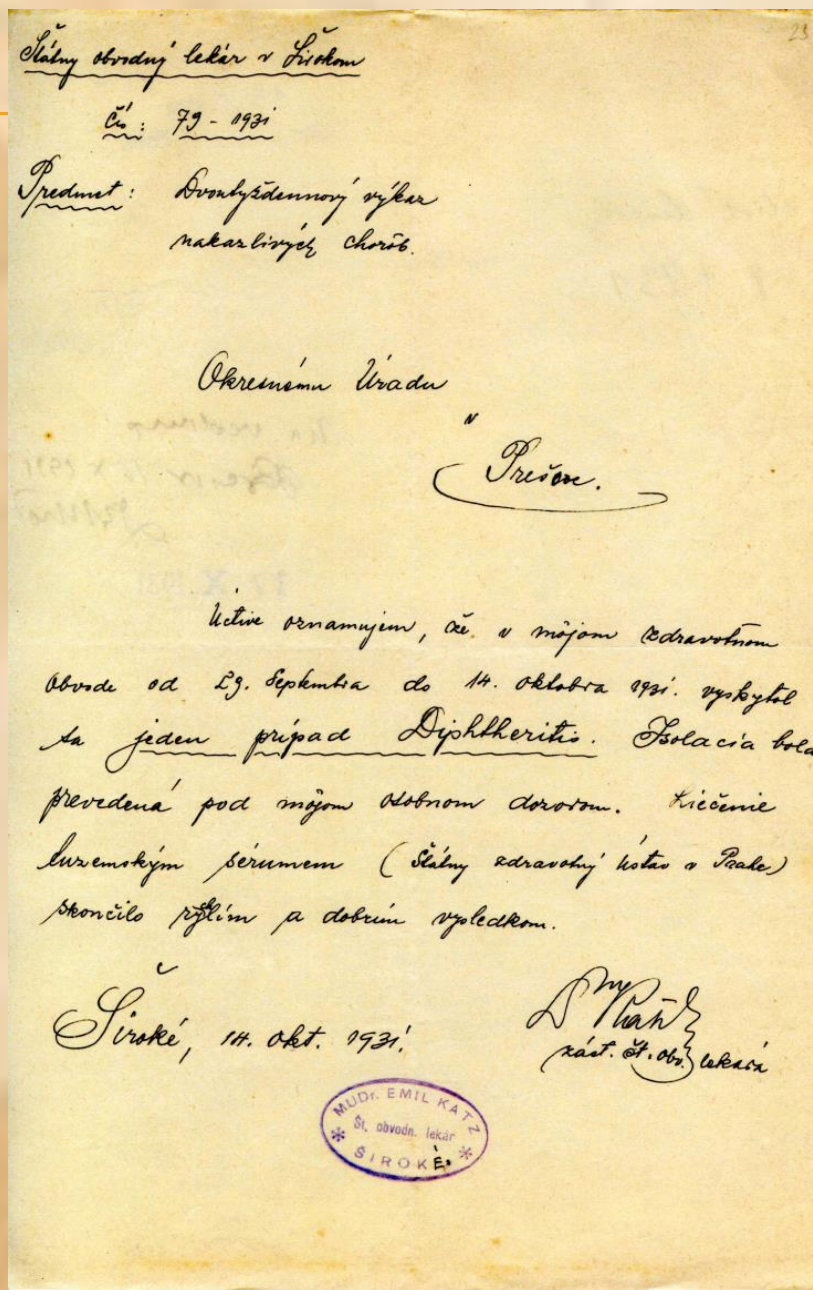 23
Štátny obvodný lekár v Širokom
Čís: 79 - 1931
Predmet: Dvoutýždennový výkaz
nakazlivých chorôb.
Okresnému Úradu
v
Prešove.
Úctive oznamujem, že v môjom zdravotnom
obvode od 29. Septembra do 14. oktobra 1931. vyskytol
sa jeden prípad Diphtheritis. Isolacia bola
prevedená pod môjom osobnom dozorom. Liečenie
tuzemským sérumem (Štátny zdravotný Ústav v Prahe)
skončilo rýhlím a dobrím vysledkom.
Široké, 14. okt. 1931.
Dr
zást. št. obv. lekára
MUDr. EMIL KATZ
Št. obvodn. lekár
ŠIROKÉ.